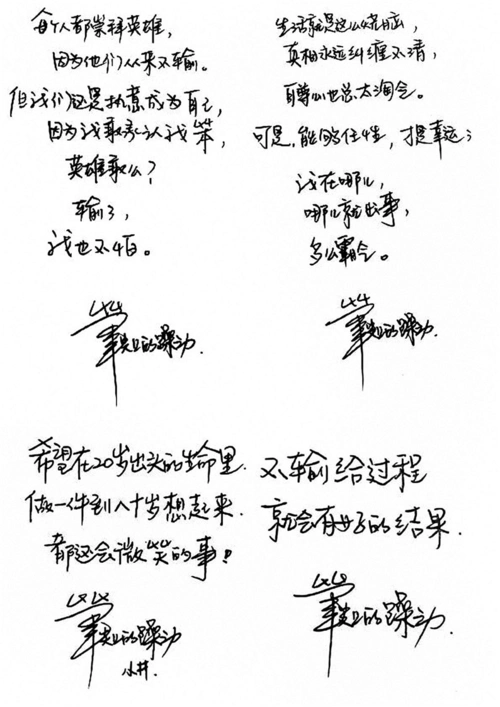 每个人都崇拜英雄，
因为他们从来不输。
但我们还是执意成为自己，
因为我敢承认我笨，
英雄敢么？
输了，
我也不怕。
毕业的躁动.
生活就是这么烧脑，
真相永远纠缠不清，
自尊心也总太淘气。
可是，能够任性，才是幸运；
我在哪儿，
哪儿就出事，
多么霸气。
毕业的躁动.
希望在20岁出头的生命里.
做一件到八十岁想起来.
都还会微笑的事！
毕业的躁动
小井.
不输给过程
就会有好的结果.
毕业的躁动.